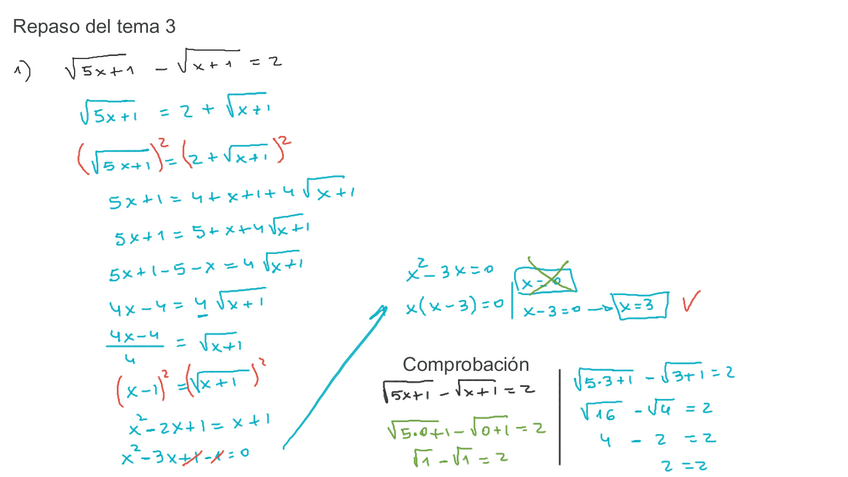 Repaso del tema 3
1) √(5x+1) − √(x+1) = 2
√(5x+1) = 2 + √(x+1)
(√(5x+1))² = (2 + √(x+1))²
5x+1 = 4+x+1+4√(x+1)
5x+1 = 5+x+4√(x+1)
5x+1−5−x = 4√(x+1)
4x−4 = 4√(x+1)
(4x−4)/4 = √(x+1)
(x−1)² = (√(x+1))²
x²−2x+1 = x+1
x²−3x+1−1=0
x²−3x=0
x=0
x(x−3)=0
x−3=0 → x=3 ✓
Comprobación
√(5x+1) − √(x+1) = 2
√(5·0+1) − √(0+1) = 2
√1 − √1 = 2
√(5·3+1) − √(3+1) = 2
√16 − √4 = 2
4 − 2 = 2
2=2